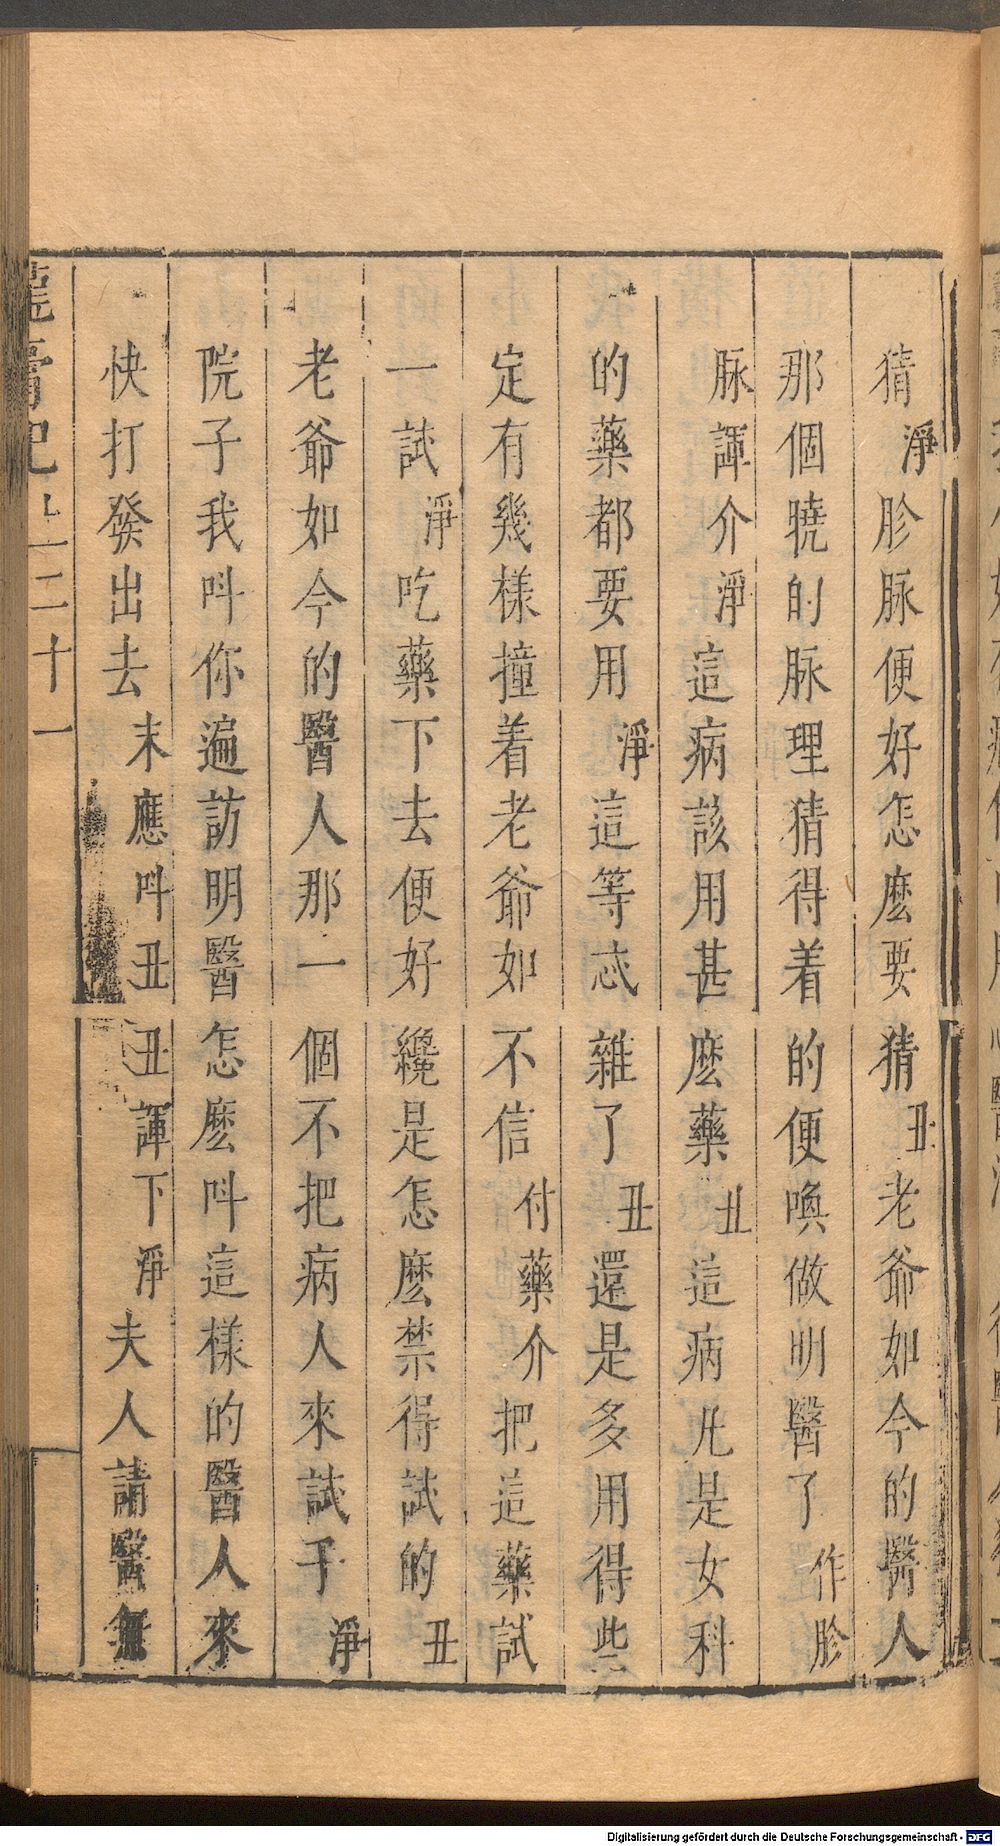 猜淨胗脉便好怎麽要猜丑老爺如今的醫人
那個曉的脉理猜得着的便喚做明醫了作胗
脉諢介淨這病該用甚麽藥丑這病凡是女科
的藥都要用淨這等忒雜了丑還是多用得些
定有幾樣撞着老爺如不信付藥介把這藥試
一試淨吃藥下去便好纔是怎麽禁得試的丑
老爺如今的醫人那一個不把病人來試手淨
院子我呌你遍訪明醫怎麽呌這樣的醫人來
快打發出去末應呌丑丑諢下淨夫人請醫無
龍膏記上二十一
Digitalisierung gefördert durch die Deutsche Forschungsgemeinschaft - DFG